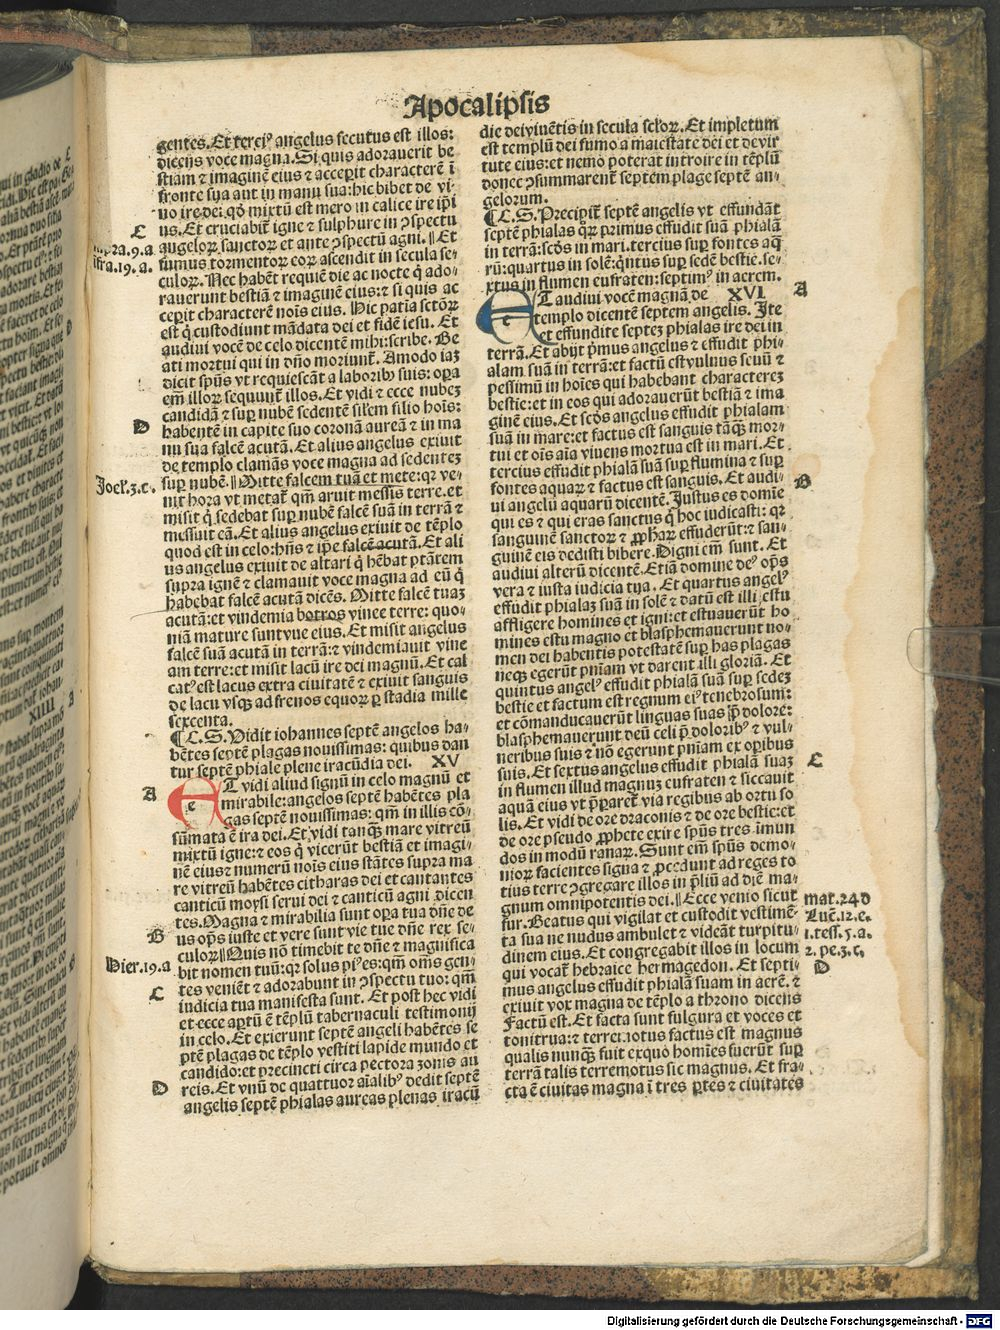 Apocalipsis
gentes. Et terciꝰ angelus secutus est illos:
dicens voce magna. Si quis adorauerit be
stiam ⁊ imaginē eius ⁊ acceperit characterē ī
fronte sua aut in manu sua: hic bibet de vi-
no ire dei: qd̓ mixtū est mero in calice ire ip̄i
us. Et cruciabit̄ igne ⁊ sulphure in ꝯspectu
angeloꝝ sanctoꝝ et ante ꝯspectū agni. ‖ Et
fumus tormentoꝝ eoꝝ ascendit in secula se-
culoꝝ. Nec habēt requiē die ac nocte q̇ ado-
rauerunt bestiā ⁊ imaginē eius: ⁊ si quis ac
ceperit characterē nois eius. Hic patiā sctōꝝ
est q̇ custodiunt mādata dei et fidē iesu. Et
audiui vocē de celo dicentē mihi: scribe. Be
ati mortui qui in dn̄o moriunt̄. Amodo iaꝫ
dicit spūs vt requiescāt a laborib̓ suis: oꝑa
em̄ illoꝝ sequunt̄ illos. Et vidi ⁊ ecce nubeꝫ
candidā ⁊ suꝑ nubē sedentē silem filio hois:
habentē in capite suo coronā aureā ⁊ in ma
nu sua falcē acutā. Et alius angelus exiuit
de templo clamās voce magna ad sedenteꝫ
suꝑ nubē. ‖ Mitte falcem tuā et mete: qꝛ ve-
nit hora vt metat̄ qm̄ aruit messis terre. et
misit q̇ sedebat suꝑ nubē falcē suā in terrā ⁊
messuit eā. Et alius angelus exiuit de tēplo
quod est in celo: hn̄s ⁊ ip̄e falcē acutā. Et ali
us angelus exiuit de altari q̇ hēbat ptātem
supra ignē ⁊ clamauit voce magna ad eū q̇
habebat falcē acutā dicēs. Mitte falcē tuaꝫ
acutā: et vindemia botros vinee terre: quo-
niā mature sunt vue eius. Et misit angelus
falcē suā acutā in terrā: ⁊ vindemiauit vine
am terre: et misit lacū ire dei magnū. Et cal
catꝰ est lacus extra ciuitatē ⁊ exiuit sanguis
de lacu vsqꝫ ad frenos equoꝝ ꝑ stadia mille
sexcenta.
¶ C. S. Vidit iohannes septē angelos ha-
bētes septē plagas nouissimas: quibus dan
tur septē phiale plene iracūdia dei. XV
Et vidi aliud signū in celo magnū et
mirabile: angelos septē habētes pla
gas septē nouissimas: qm̄ in illis cō-
sūmata ē ira dei. Et vidi tanqꝫ mare vitreū
mixtū igne: ⁊ eos q̇ vicerūt bestiā et imagi-
nē eius ⁊ numerū nois eius stātes supra ma
re vitreū habētes citharas dei et cantantes
canticū moysi serui dei ⁊ canticū agni dicen
tes. Magna ⁊ mirabilia sunt oꝑa tua dn̄e de
us op̄s iuste et vere sunt vie tue dn̄e rex se-
culoꝝ ‖ Quis nō timebit te dn̄e ⁊ magnifica
bit nomen tuū: qꝛ solus piꝰ es: qm̄ oms gen-
tes veniēt ⁊ adorabunt in ꝯspectu tuo: qm̄
iudicia tua manifesta sunt. Et post hec vidi
et ecce aptū ē tēplū tabernaculi testimonij
in celo. Et exierunt septē angeli habētes se
ptē plagas de tēplo vestiti lapide mundo et
candido: et precincti circa pectora zonis au
reis. Et vnū de quattuor aialibꝰ dedit septē
angelis septē phialas aureas plenas iracū
C
supra. 9. a
ifra. 19. a.
D
Joeł. 3. c.
A
B
Hier. 19. a
C
D
die dei viuētis in secula sc̄loꝝ. Et impletum
est templū dei fumo a maiestate dei et de vir
tute eius: et nemo poterat introire in tēplū
donec ꝯsummarent̄ septem plage septē an-
gelorum.
¶ C. S. Precipit̄ septē angelis vt effundāt
septē phialas qꝝ primus effudit suā phialā
in terrā: scd̓s in mari. tercius suꝑ fontes aq̄
rū: quartus in solē: q̇ntus suꝑ sedē bestie. se-
xtus in flumen eufraten: septimꝰ in aerem.
Et audiui vocē magnā de XVI
templo dicentē septem angelis. Ite
et effundite septeꝫ phialas ire dei in
terrā. Et abijt p̄mus angelus ⁊ effudit phi-
alam suā in terrā: et factū est vulnus seuū ⁊
pessimū in hoies qui habebant characterez
bestie: et in eos qui adorauerūt bestiā ⁊ ima
ginē eius. Et scd̓s angelus effudit phialam
suā in mare: et factus est sanguis tāqꝫ mor-
tui et oīs aia viuens mortua est in mari. Et
tercius effudit phialā suā suꝑ flumina ⁊ suꝑ
fontes aquaꝝ ⁊ factus est sanguis. Et audi-
ui angelū aquarū dicentē. Justus es domine
qui es ⁊ qui eras sanctus q̇ hoc iudicasti: qꝛ
sanguinē sanctoꝝ ⁊ ꝓphaꝝ effuderūt: ⁊ san-
guinē eis dedisti bibere. Digni em̄ sunt. Et
audiui alterū dicentē. Etiā domine deꝰ op̄s
vera ⁊ iusta iudicia tua. Et quartus angelꝰ
effudit phialaꝫ suā in solē ⁊ datū est illi estu
affligere homines et igni: et estuauerūt ho-
mines estu magno et blasphemauerunt no-
men dei habentis potestatē suꝑ has plagas
neqꝫ egerūt pn̄iam vt darent illi gloriā. Et
quintus angelꝰ effudit phialā suā suꝑ sedeꝫ
bestie et factum est regnum eiꝰ tenebrosum:
et cōmanducauerūt linguas suas p̄ dolore:
blasphemauerunt deū celi p̄ dolorib̓ ⁊ vul-
neribus suis ⁊ nō egerunt pn̄iam ex oꝑibus
suis. Et sextus angelus effudit phialā suaꝫ
in flumen illud magnuꝫ eufraten ⁊ siccauit
aquā eius vt p̄paret̄ via regibus ab ortu so
lis. Et vidi de ore draconis ⁊ de ore bestie: et
de ore pseudo ꝓphete exire spūs tres immun
dos in modū ranaꝝ. Sunt em̄ spūs demo-
nioꝝ facientes signa ⁊ ꝓcedunt ad reges to
tius terre ꝯgregare illos in p̄liū ad diē ma-
gnum omnipotentis dei. ‖ Ecce venio sicut
fur. Beatus qui vigilat et custodit vestimē-
ta sua ne nudus ambulet ⁊ videāt turpitu-
dinem eius. Et congregabit illos in locum
qui vocat̄ hebraice hermagedon. Et septi-
mus angelus effudit phialā suam in aerē. ⁊
exiuit vox magna de tēplo a throno dicens
Factū est. Et facta sunt fulgura et voces et
tonitrua: ⁊ terremotus factus est magnus
qualis nunqꝫ fuit ex quo homines fuerūt suꝑ
terrā talis terremotus sic magnus. Et fra-
cta ē ciuitas magna ī tres ꝑtes ⁊ ciuitates
A
B
C
mat. 24 d
Luē. 12. e.
1. tess. 5. a.
2. pe. 3. c.
D
Digitalisierung gefördert durch die Deutsche Forschungsgemeinschaft - DFG